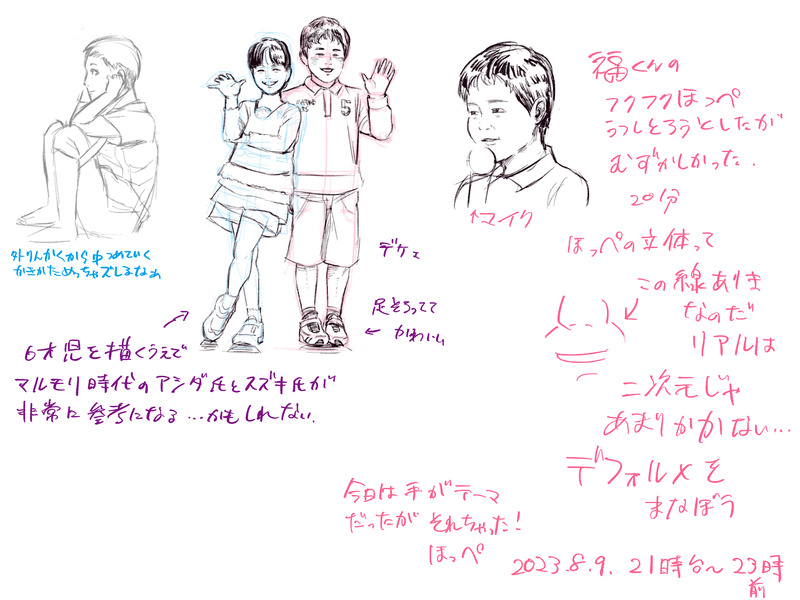 外りんかくから中つめていく
かきかためっちゃズレるなぁ
6才児を描くうえで
マルモリ時代のアシダ氏とスズキ氏が
非常に参考になる…かもしれない.
デケェ
足そろってて
← かわいい
5
↑マイク
福くんの
フクフクほっぺ
うつしとろうとしたが
むずかしかった.
20分
ほっぺの立体って
この線ありき
なのだ
リアルは
二次元じゃ
あまりかかない…
デフォルメを
まなぼう
今日は手がテーマ
だったが それちゃった!
ほっぺ
2023.8.9. 21時台〜23時
前